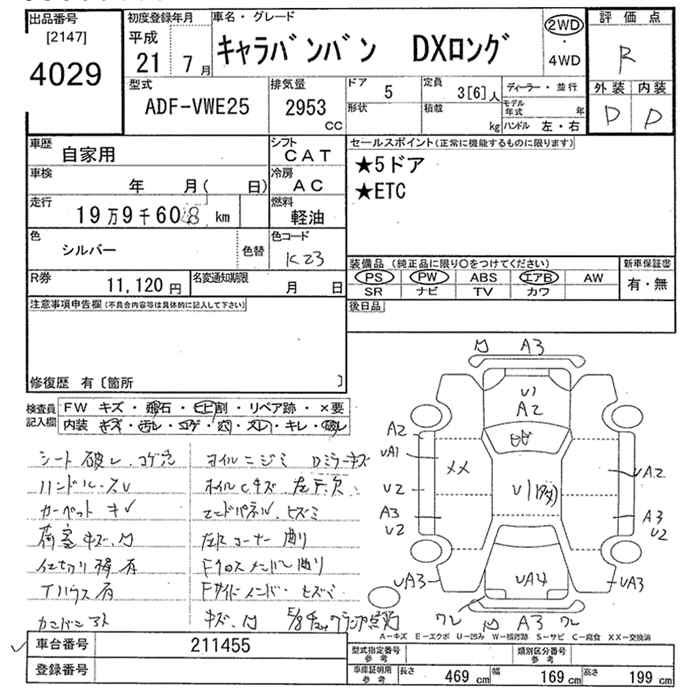 出品番号 初度登録年月 車名・グレード 2WD 評価点
[2147] 平成 キャラバンバン DXロング ・ R
4029 21 7月 4WD
型式 排気量 ドア 5 定員 3[6]人 ディーラー・並行 外装 内装
ADF-VWE25 2953 CC 形状 積載 kg モデル年式 年 D D
ハンドル 左・右
車歴 自家用 シフト CAT セールスポイント(正常に機能するものに限ります)
車検 年 月( 日) 冷房 AC ★5ドア
走行 19万9千608km 燃料 軽油 ★ETC
色 シルバー 色替 色コード K23
装備品(純正品に限り○をつけてください) 新車保証書
PS PW ABS エアB AW 有・無
SR ナビ TV カワ
R券 11,120円 名変通知期限 月 日
後日品
注意事項申告欄(不具合内容等は具体的に記入して下さい)
修復歴 有〔箇所 〕
検査員記入欄 FW キズ・飛石・ヒビ割・リペア跡・×要
内装・キズ・汚レ・コゲ・穴・スレ・キレ・破レ
シート破レ.コゲ穴 オイルニジミ Dミラーキズ
ハンドルスレ
カーペット
荷室キズ.凹 左Rコーナー曲り
有
Tハウス有
キズ.凹
凹 A3
U1
A2
A2
UA1
XX
U2
A3
U2
UA2
A3
U2
UA3 UA4 UA3
ワレ 凹 A3 ワレ
A-キズ E-エクボ U-凹み W-補修跡 S-サビ C-腐食 XX-交換済
車台番号 211455
登録番号
型式指定番号 参考 類別区分番号 参考
車庫証明用 参考 長さ 469cm 幅 169cm 高さ 199cm